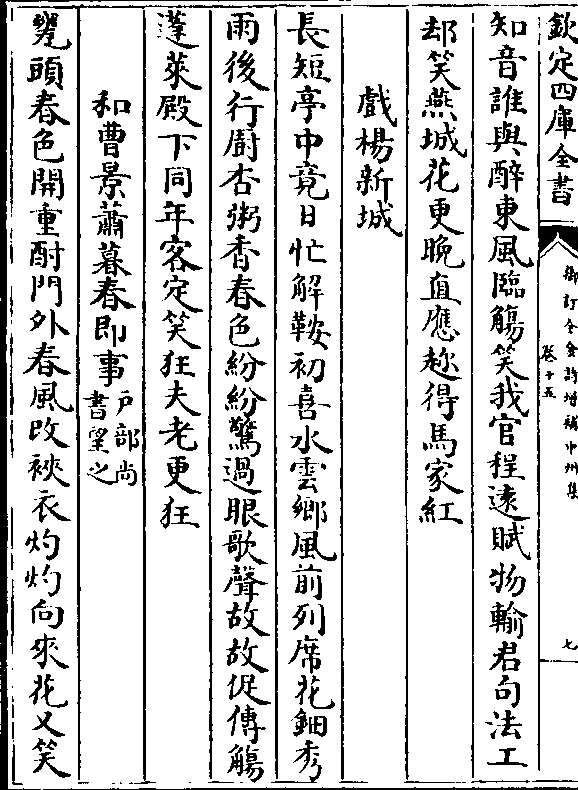 欽定四庫全書
御訂全金詩增補中州集
卷十五
七
知音誰與醉東風臨觴笑我官程遠賦物輸君句法工
却笑燕城花更晚直應趂得馬家紅
戲楊新城
長短亭中竟日忙解鞍初喜水雲鄉風前列席花鈿秀
雨後行廚杏粥香春色紛紛驚過眼歌聲故故促傳觴
蓬萊殿下同年客定笑狂夫老更狂
和曹景蕭暮春即事戶部尚
書望之
甕頭春色開重酎門外春風改裌衣灼灼向來花又笑